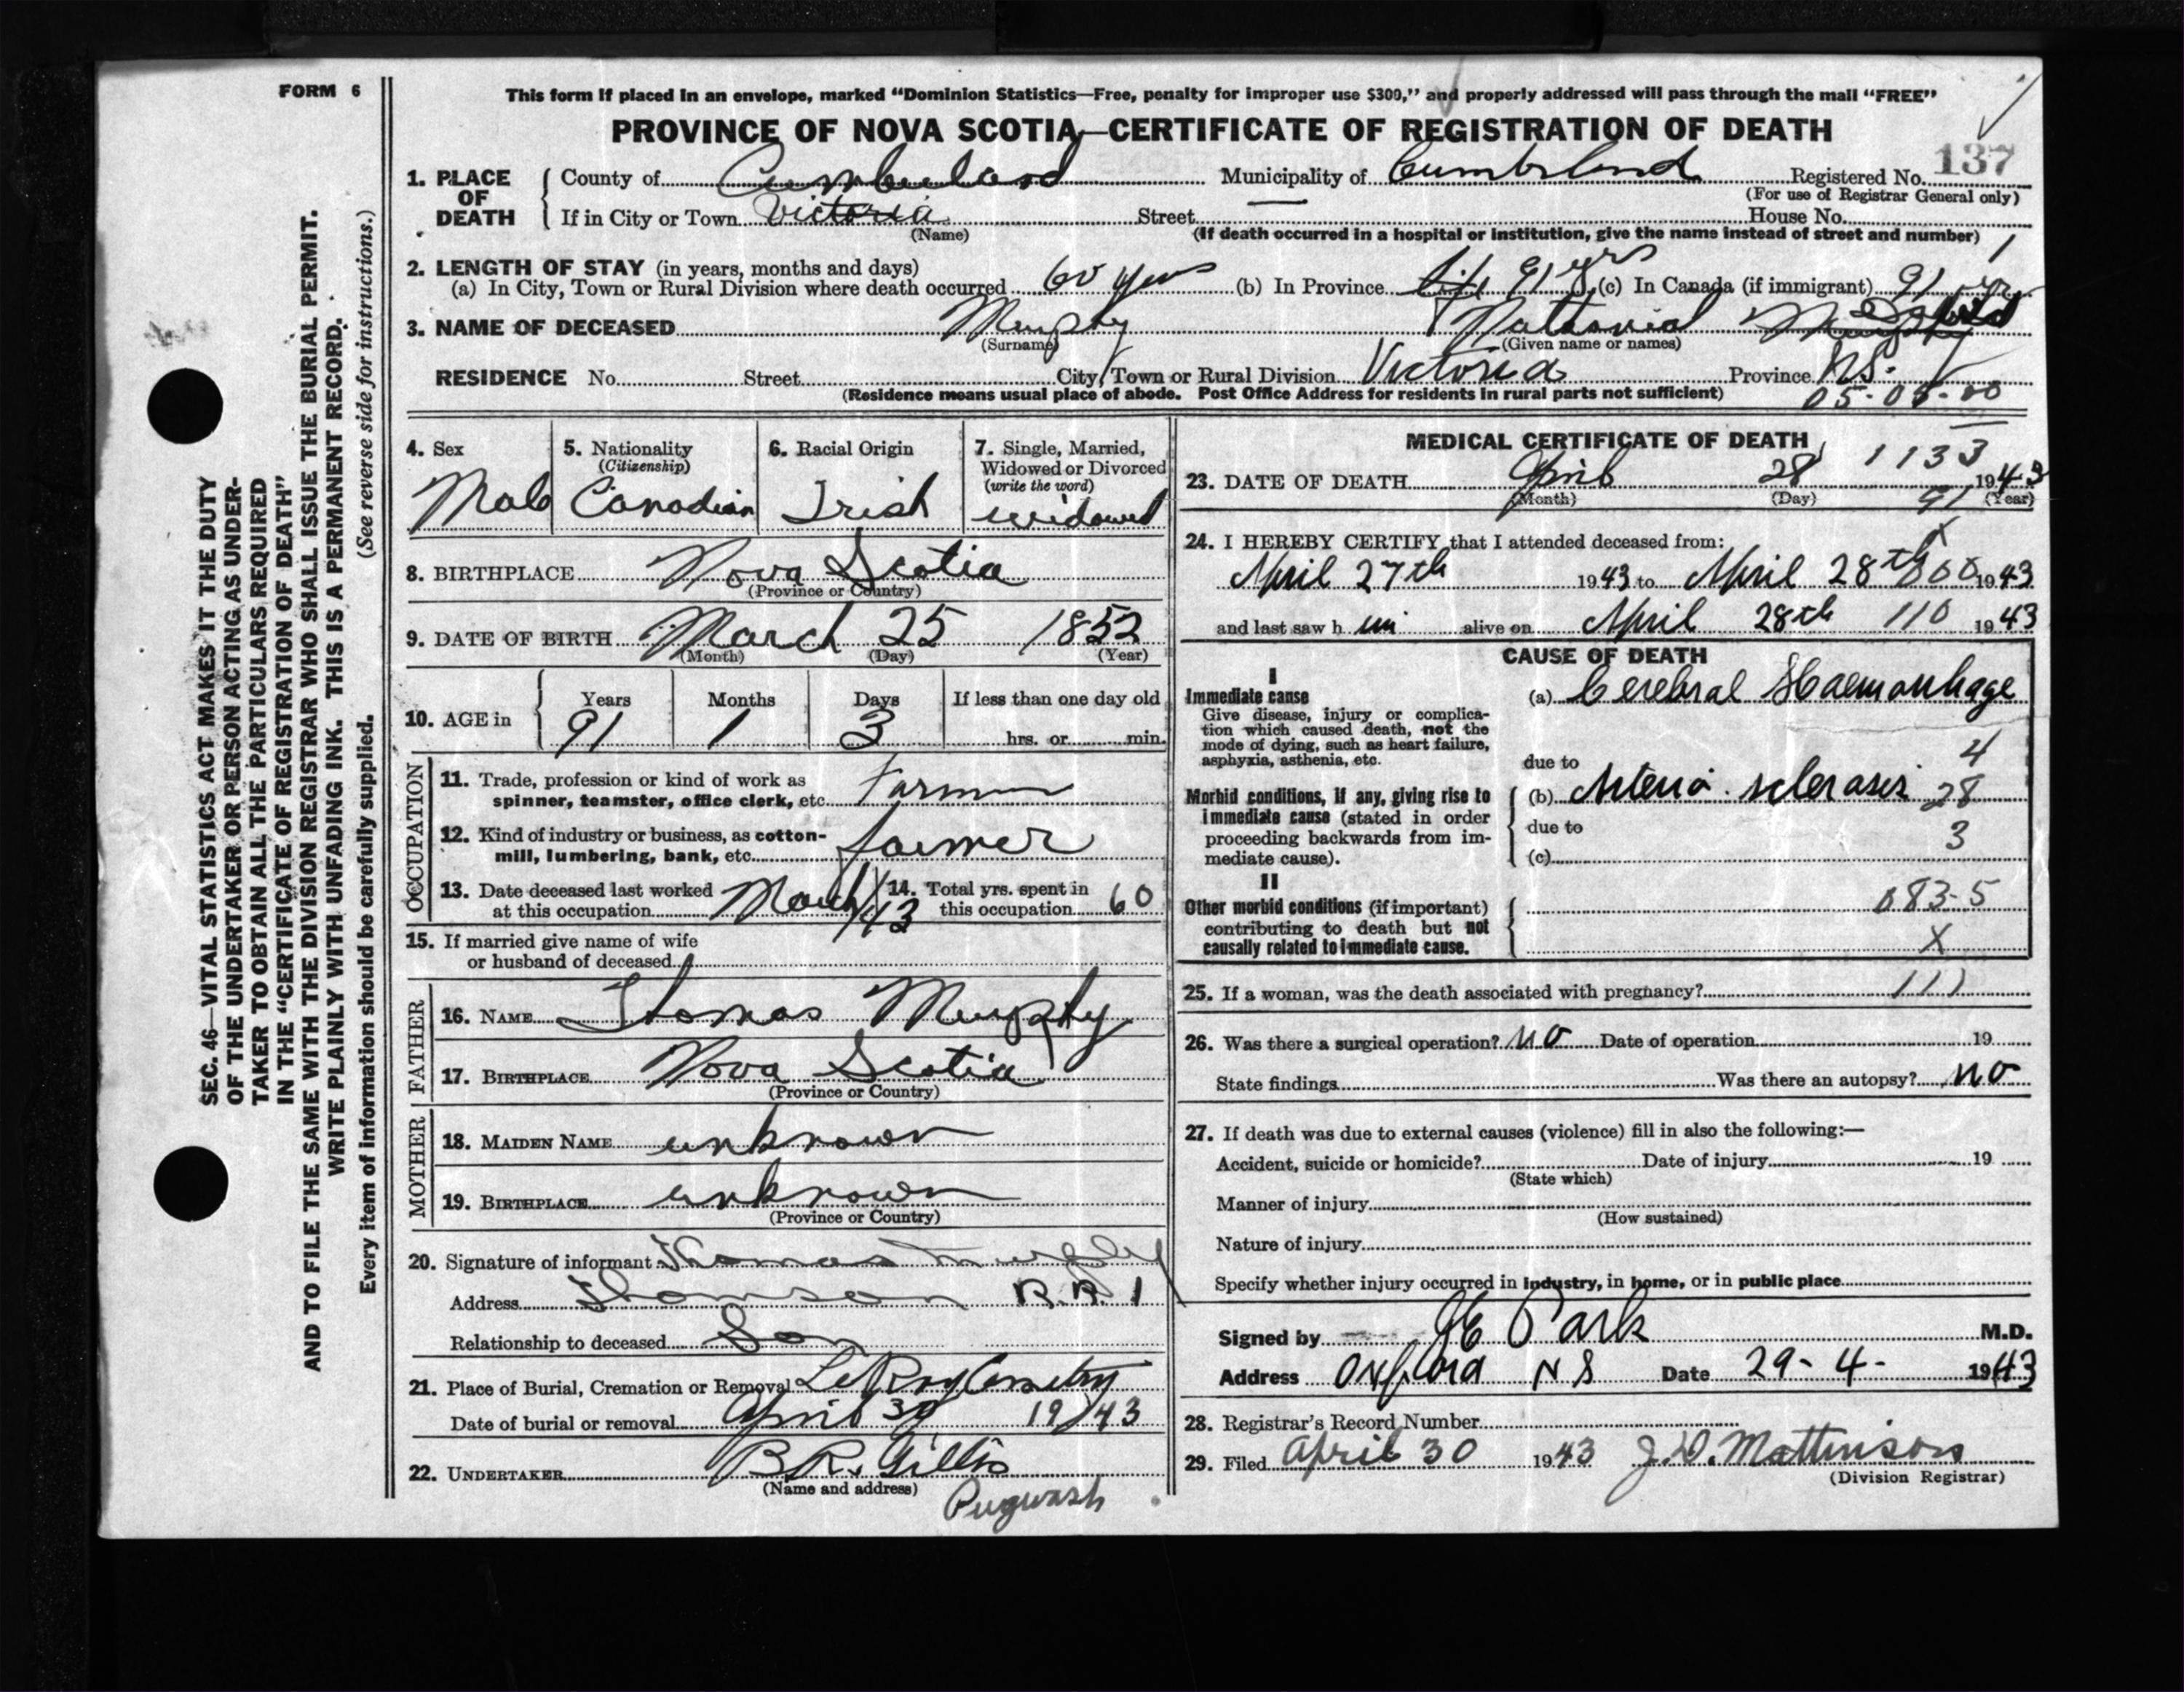 FORM 6
This form if placed in an envelope, marked “Dominion Statistics—Free, penalty for improper use $300,” and properly addressed will pass through the mail “FREE”
PROVINCE OF NOVA SCOTIA—CERTIFICATE OF REGISTRATION OF DEATH
1. PLACE OF DEATH County of Cumberland Municipality of Cumberland Registered No. 137
(For use of Registrar General only)
If in City or Town Victoria Street — House No.
(Name) (If death occurred in a hospital or institution, give the name instead of street and number) 1
2. LENGTH OF STAY (in years, months and days)
(a) In City, Town or Rural Division where death occurred 60 years (b) In Province life 91 yrs (c) In Canada (if immigrant) 91 yrs
3. NAME OF DECEASED Murphy Nathanial
(Surname) (Given name or names)
RESIDENCE No. Street City, Town or Rural Division Victoria Province N.S.
(Residence means usual place of abode. Post Office Address for residents in rural parts not sufficient) 05-05-00
4. Sex Male
5. Nationality (Citizenship) Canadian
6. Racial Origin Irish
7. Single, Married, Widowed or Divorced (write the word) widowed
8. BIRTHPLACE Nova Scotia
(Province or Country)
9. DATE OF BIRTH March 25 1852
(Month) (Day) (Year)
10. AGE in Years 91 Months 1 Days 3 If less than one day old
hrs. or min.
OCCUPATION
11. Trade, profession or kind of work as
spinner, teamster, office clerk, etc. Farmer
12. Kind of industry or business, as cotton-
mill, lumbering, bank, etc. farmer
13. Date deceased last worked
at this occupation March/43
14. Total yrs. spent in
this occupation 60
15. If married give name of wife
or husband of deceased
FATHER
16. NAME Thomas Murphy
17. BIRTHPLACE Nova Scotia
(Province or Country)
MOTHER
18. MAIDEN NAME unknown
19. BIRTHPLACE unknown
(Province or Country)
20. Signature of informant Thomas Murphy
Address Thomson R.R. 1
Relationship to deceased Son
21. Place of Burial, Cremation or Removal LeRoy Cemetry
Date of burial or removal April 30 1943
22. UNDERTAKER B R. Gillis
(Name and address) Pugwash
MEDICAL CERTIFICATE OF DEATH
1133
23. DATE OF DEATH April 28 1943
(Month) (Day) 91 (Year)
X
24. I HEREBY CERTIFY that I attended deceased from:
April 27th 1943 to April 28th 000 1943
and last saw h im alive on April 28th 110 1943
CAUSE OF DEATH
I
Immediate cause (a) Cerebral Haemorrhage
Give disease, injury or complica-
tion which caused death, not the
mode of dying, such as heart failure,
asphyxia, asthenia, etc.
due to 4
Morbid conditions, if any, giving rise to
immediate cause (stated in order
proceeding backwards from im-
mediate cause).
(b) Arterio-sclerosis 28
due to 3
(c)
II
Other morbid conditions (if important)
contributing to death but not
causally related to immediate cause.
083-5
X
25. If a woman, was the death associated with pregnancy? 111
26. Was there a surgical operation? no Date of operation 19
State findings Was there an autopsy? no
27. If death was due to external causes (violence) fill in also the following:—
Accident, suicide or homicide? Date of injury 19
(State which)
Manner of injury
(How sustained)
Nature of injury
Specify whether injury occurred in industry, in home, or in public place
Signed by JE Park M.D.
Address Oxford N S Date 29-4- 1943
28. Registrar's Record Number
29. Filed April 30 1943 J.D. Mattinson
(Division Registrar)
SEC. 46—VITAL STATISTICS ACT MAKES IT THE DUTY
OF THE UNDERTAKER OR PERSON ACTING AS UNDER-
TAKER TO OBTAIN ALL THE PARTICULARS REQUIRED
IN THE “CERTIFICATE OF REGISTRATION OF DEATH”
AND TO FILE THE SAME WITH THE DIVISION REGISTRAR WHO SHALL ISSUE THE BURIAL PERMIT.
WRITE PLAINLY WITH UNFADING INK. THIS IS A PERMANENT RECORD.
Every item of information should be carefully supplied. (See reverse side for instructions.)